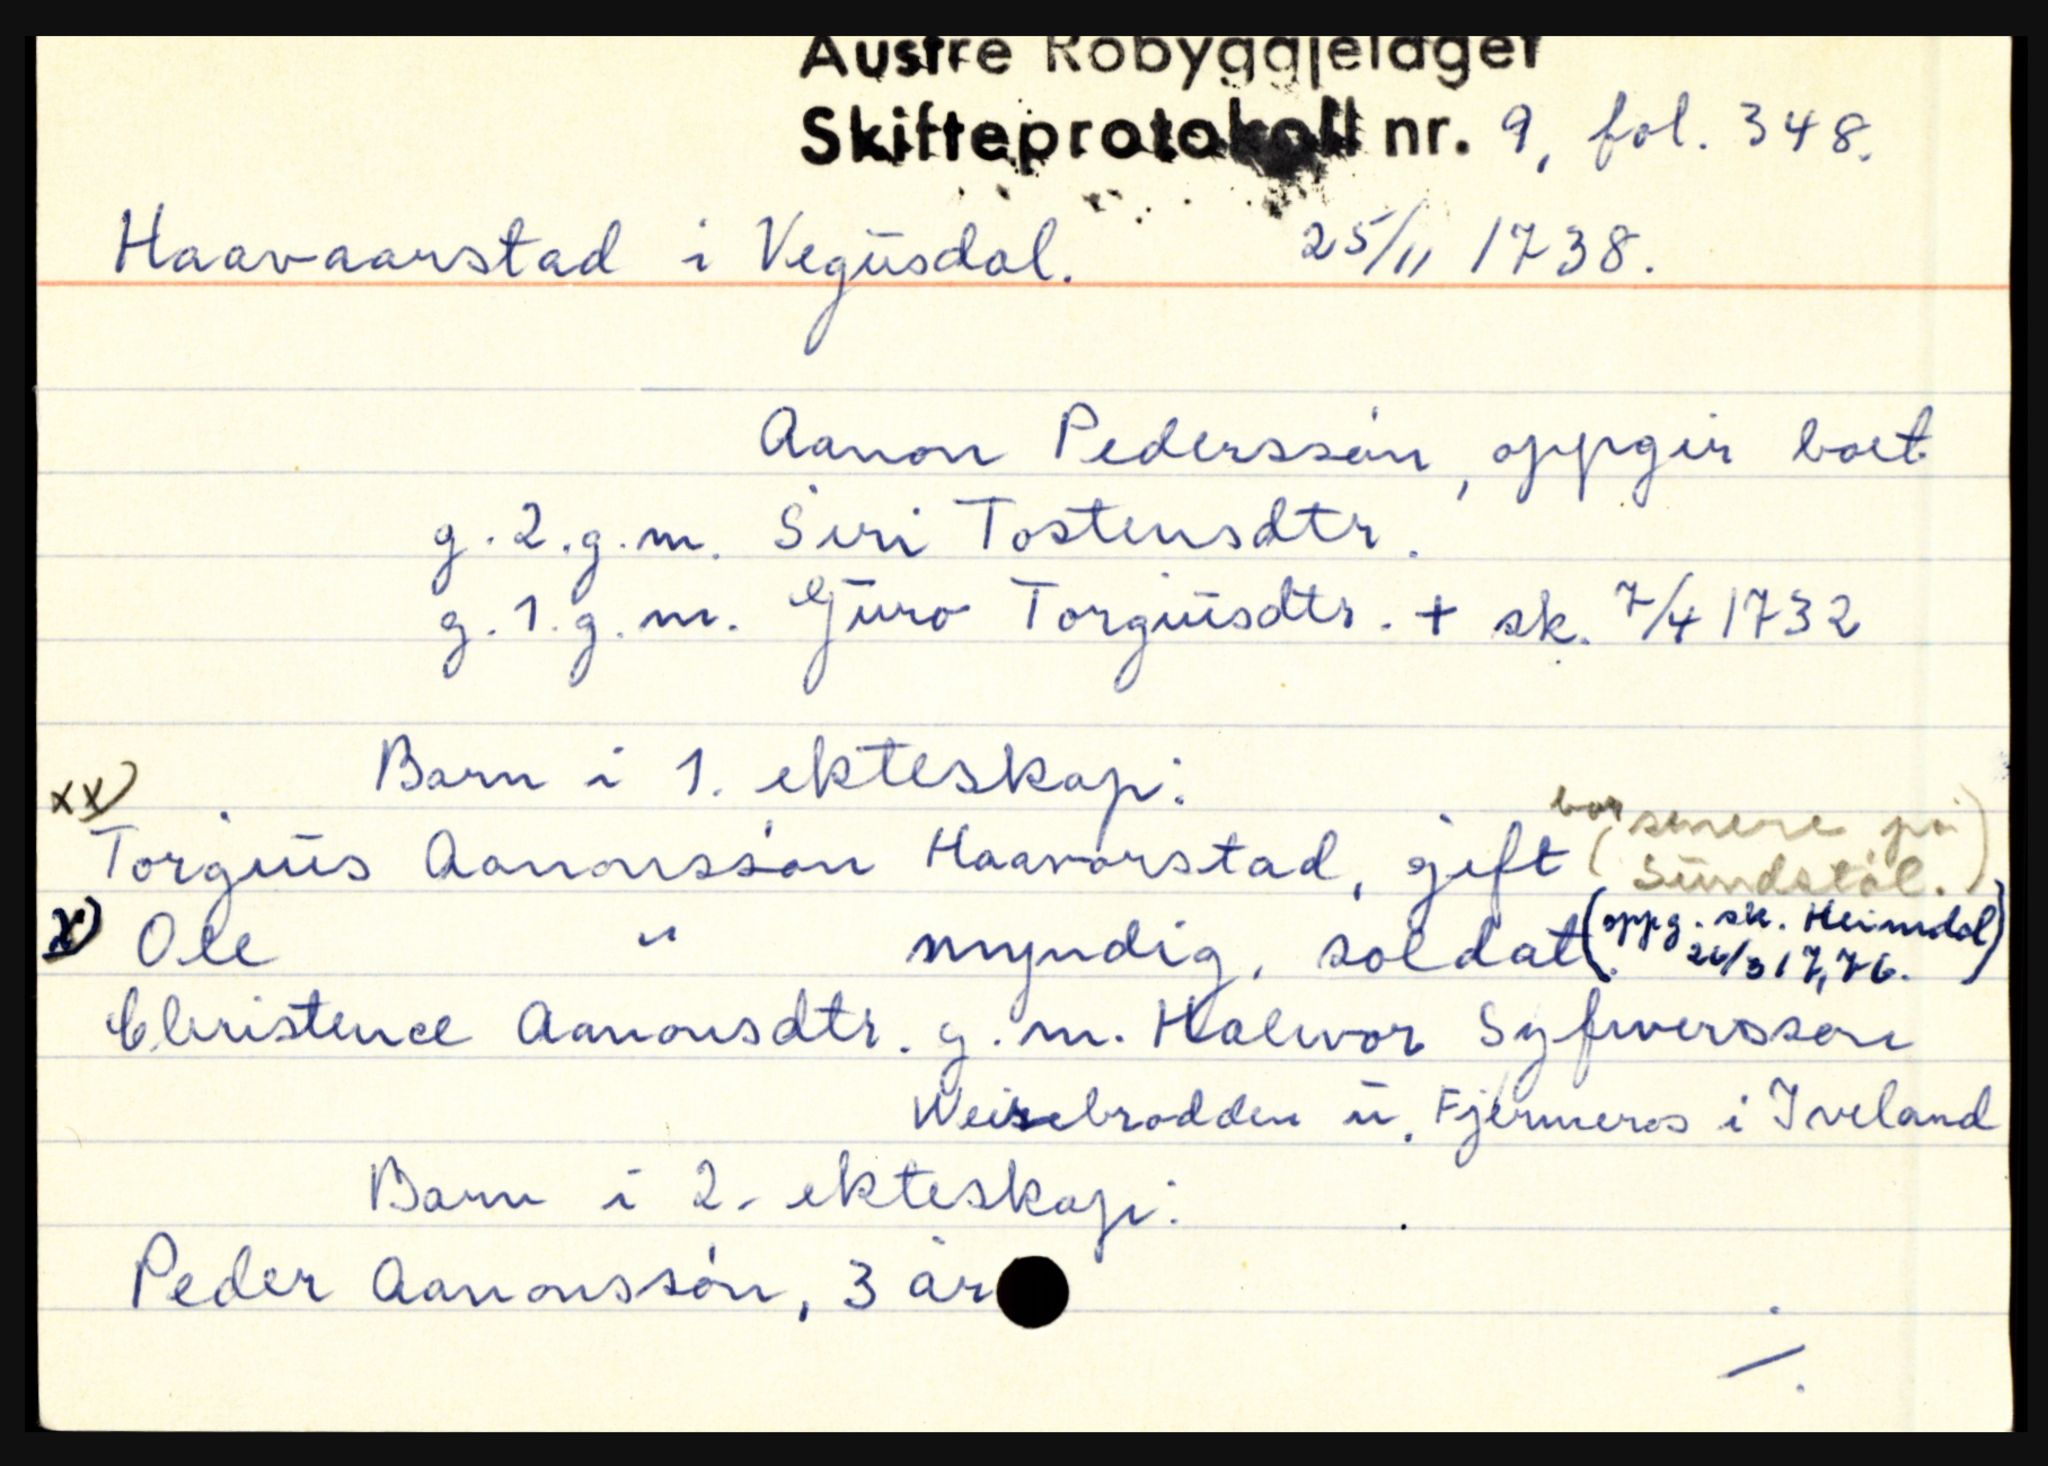 Austre Robyggjelaget
Skifteprotokoll nr. 9, fol. 348.
Haavaarstad i Vegusdal. 25/11 1738.
Aanon Pederssøn, oppgir boet
g. 2. g. m. Siri Tostensdtr.
g. 1. g. m. Guro Torgiusdtr. + sk. 7/4 1732
Barn i 1. ekteskap:
xx) Torgius Aanonssøn Haavorstad, gift (bor senere på
Sundstøl.)
x) Ole " myndig, soldat. (oppg. sk. Heimdal
26/3 1776.)
Christence Aanonsdtr. g. m. Halvor Syfwerssøn
Weisebrodden u. Fjermeros i Iveland
Barn i 2. ekteskap:
Peder Aanonssøn, 3 år